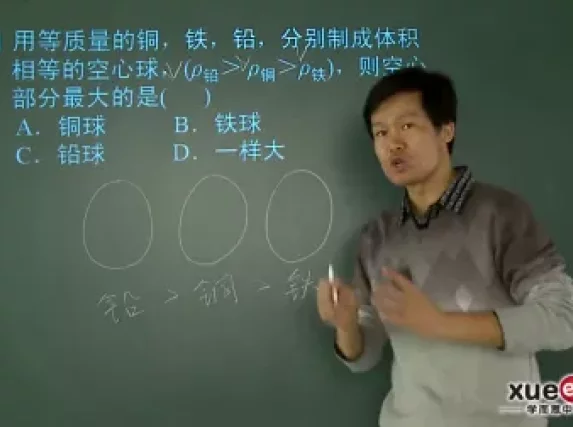 用等质量的铜，铁，铅，分别制成体积
相等的空心球，(ρ铅＞ρ铜＞ρ铁)，则空心
部分最大的是(　　)
A．铜球　　B．铁球
C．铅球　　D．一样大
铅 > 铜 - 铁
xuee
学而思中